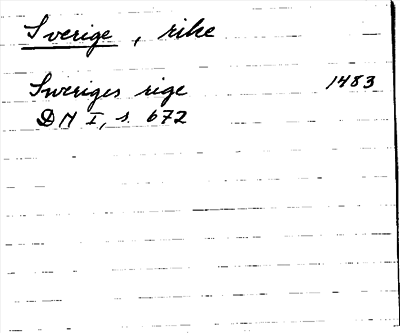 Sverige, rike
Sweriges rige 1483
DN I, s. 672